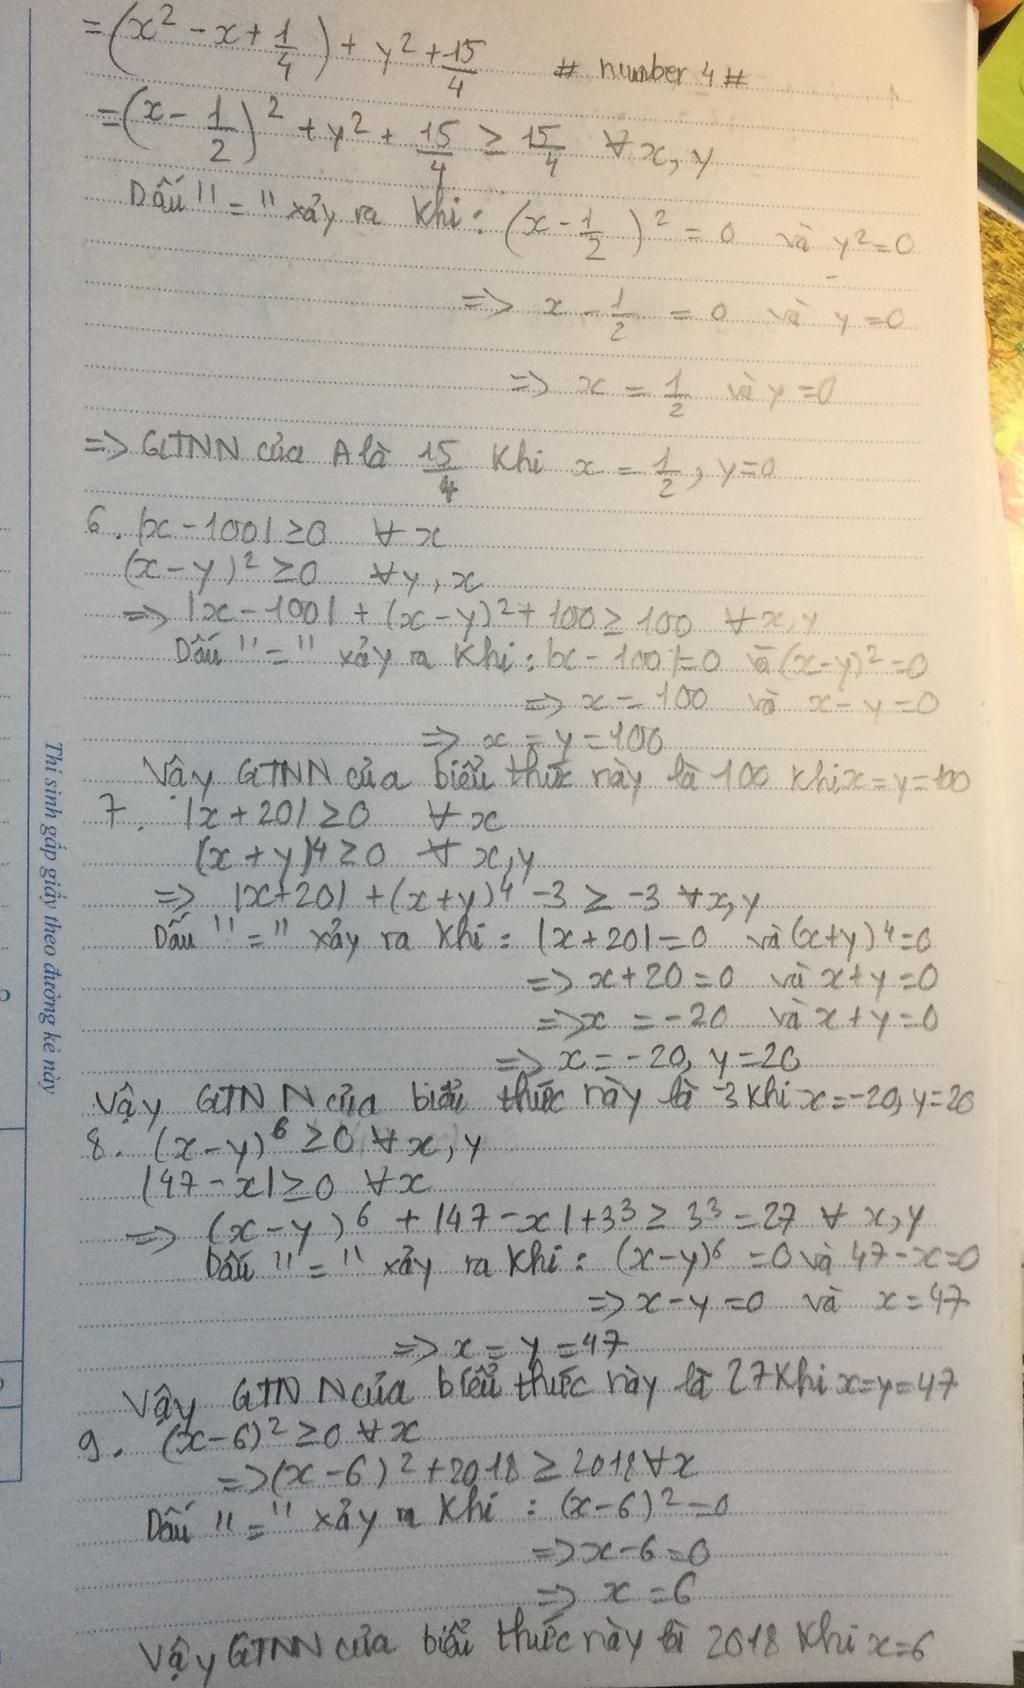 = (x² - x + 1/4) + y² + 15/4 # number 4 #
= (x - 1/2)² + y² + 15/4 ≥ 15/4 ∀ x, y
Dấu " = " xảy ra khi : (x - 1/2)² = 0 và y² = 0
=> x - 1/2 = 0 và y = 0
=> x = 1/2 và y = 0
=> GTNN của A là 15/4 khi x = 1/2, y = 0
6. |x - 100| ≥ 0 ∀ x
(x - y)² ≥ 0 ∀ y, x
=> |x - 100| + (x - y)² + 100 ≥ 100 ∀ x, y
Dấu " = " xảy ra khi : |x - 100| = 0 và (x - y)² = 0
=> x = 100 và x - y = 0
=> x = y = 100
Vậy GTNN của biểu thức này là 100 khi x = y = 100
7. |x + 20| ≥ 0 ∀ x
(x + y)⁴ ≥ 0 ∀ x, y
=> |x + 20| + (x + y)⁴ - 3 ≥ -3 ∀ x, y
Dấu " = " xảy ra khi : |x + 20| = 0 và (x + y)⁴ = 0
=> x + 20 = 0 và x + y = 0
=> x = -20 và x + y = 0
=> x = -20, y = 20
Vậy GTNN của biểu thức này là -3 khi x = -20, y = 20
8. (x - y)⁶ ≥ 0 ∀ x, y
|47 - x| ≥ 0 ∀ x
=> (x - y)⁶ + |47 - x| + 3³ ≥ 3³ = 27 ∀ x, y
Dấu " = " xảy ra khi : (x - y)⁶ = 0 và 47 - x = 0
=> x - y = 0 và x = 47
=> x = y = 47
Vậy GTNN của biểu thức này là 27 khi x = y = 47
9. (x - 6)² ≥ 0 ∀ x
=> (x - 6)² + 2018 ≥ 2018 ∀ x
Dấu " = " xảy ra khi : (x - 6)² = 0
=> x - 6 = 0
=> x = 6
Vậy GTNN của biểu thức này là 2018 khi x = 6
Thí sinh gấp giấy theo đường kẻ này